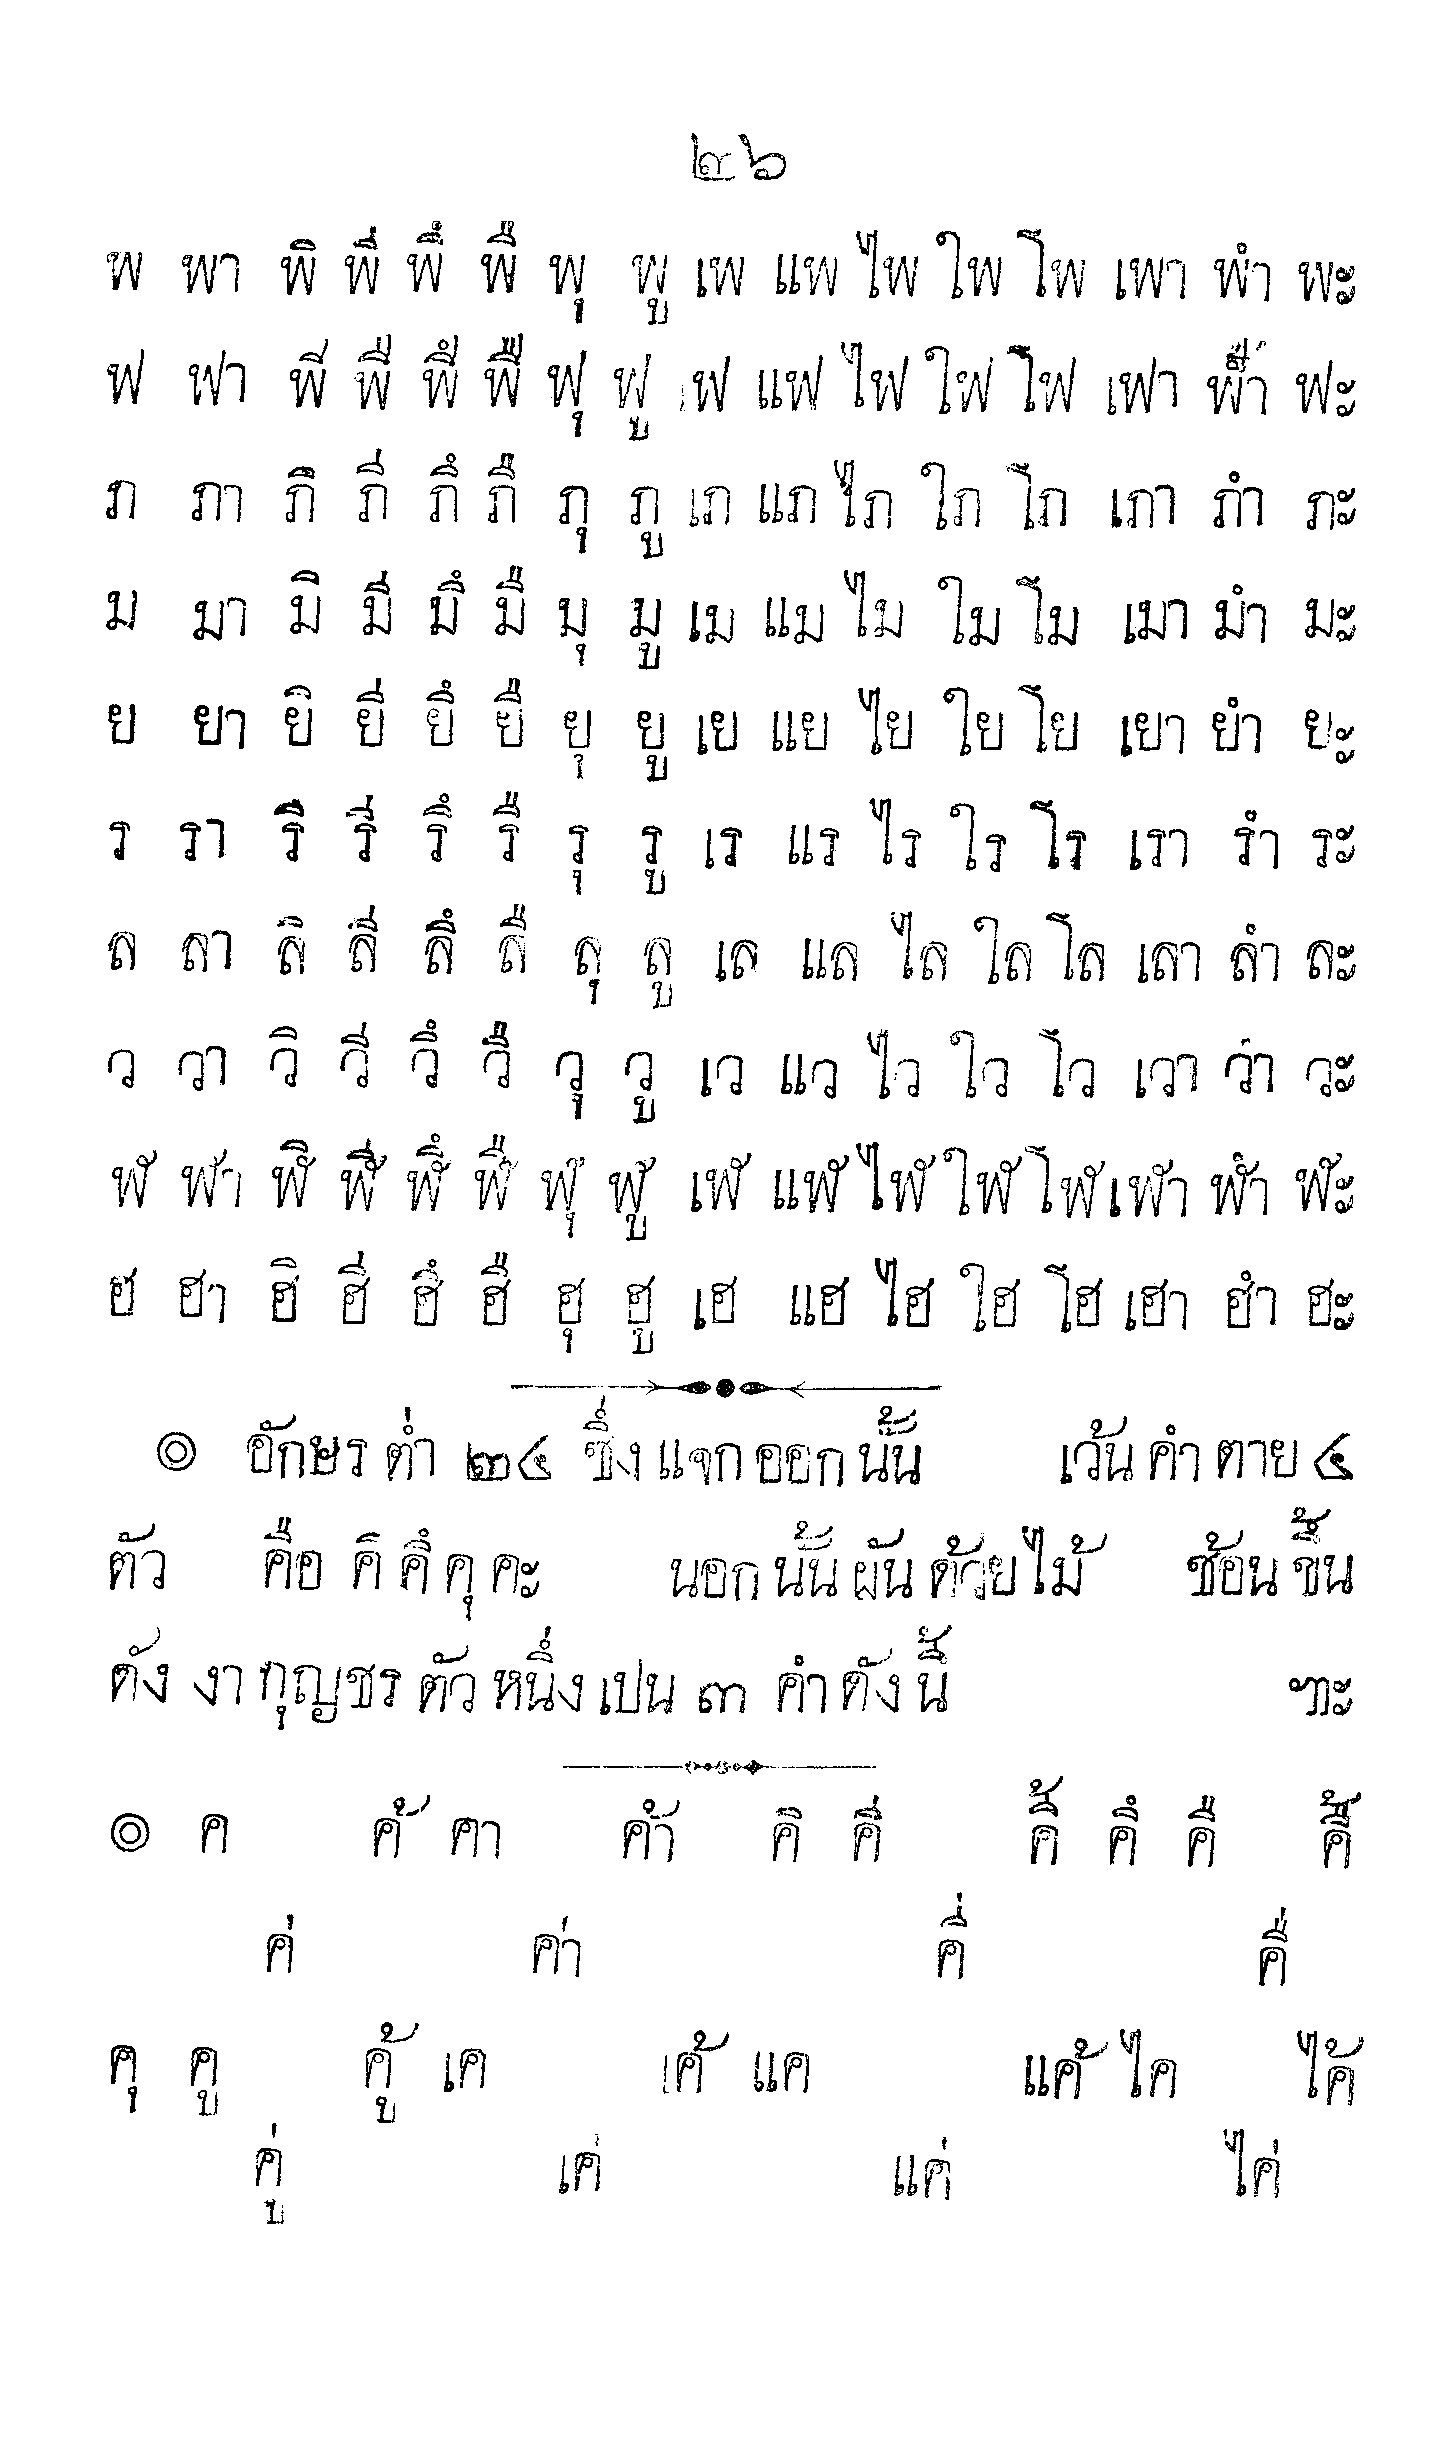 ๒๖
พ พา พิ พี พึ พื พุ พู เพ แพ ไพ ใพ โพ เพา พำ พะ
ฟ ฟา ฟิ ฟี ฟึ ฟื ฟุ ฟู เฟ แฟ ไฟ ใฟ โฟ เฟา ฟำ ฟะ
ภ ภา ภิ ภี ภึ ภื ภุ ภู เภ แภ ไภ ใภ โภ เภา ภำ ภะ
ม มา มิ มี มึ มื มุ มู เม แม ไม ใม โม เมา มำ มะ
ย ยา ยิ ยี ยึ ยื ยุ ยู เย แย ไย ใย โย เยา ยำ ยะ
ร รา ริ รี รึ รื รุ รู เร แร ไร ใร โร เรา รำ ระ
ล ลา ลิ ลี ลึ ลื ลุ ลู เล แล ไล ใล โล เลา ลำ ละ
ว วา วิ วี วึ วื วุ วู เว แว ไว ใว โว เวา วำ วะ
ฬ ฬา ฬิ ฬี ฬึ ฬื ฬุ ฬู เฬ แฬ ไฬ ใฬ โฬ เฬา ฬำ ฬะ
ฮ ฮา ฮิ ฮี ฮึ ฮื ฮุ ฮู เฮ แฮ ไฮ ใฮ โฮ เฮา ฮำ ฮะ
๏ อักษร ต่ำ ๒๔ ซึ่ง แจก ออก นั้น เว้น คำ ตาย ๔
ตัว คือ คิ คึ คุ คะ นอก นั้น ผัน ด้วย ไม้ ซ้อน ขึ้น
ดัง งา กุญชร ตัว หนึ่ง เปน ๓ คำ ดัง นี้ ฯะ
๏ ค ค้ คา ค้า คิ คี คี้ คึ คื คื้
ค่ ค่า คี่ คื่
คุ คู คู้ เค เค้ แค แค้ ไค ไค้
คู่ เค่ แค่ ไค่